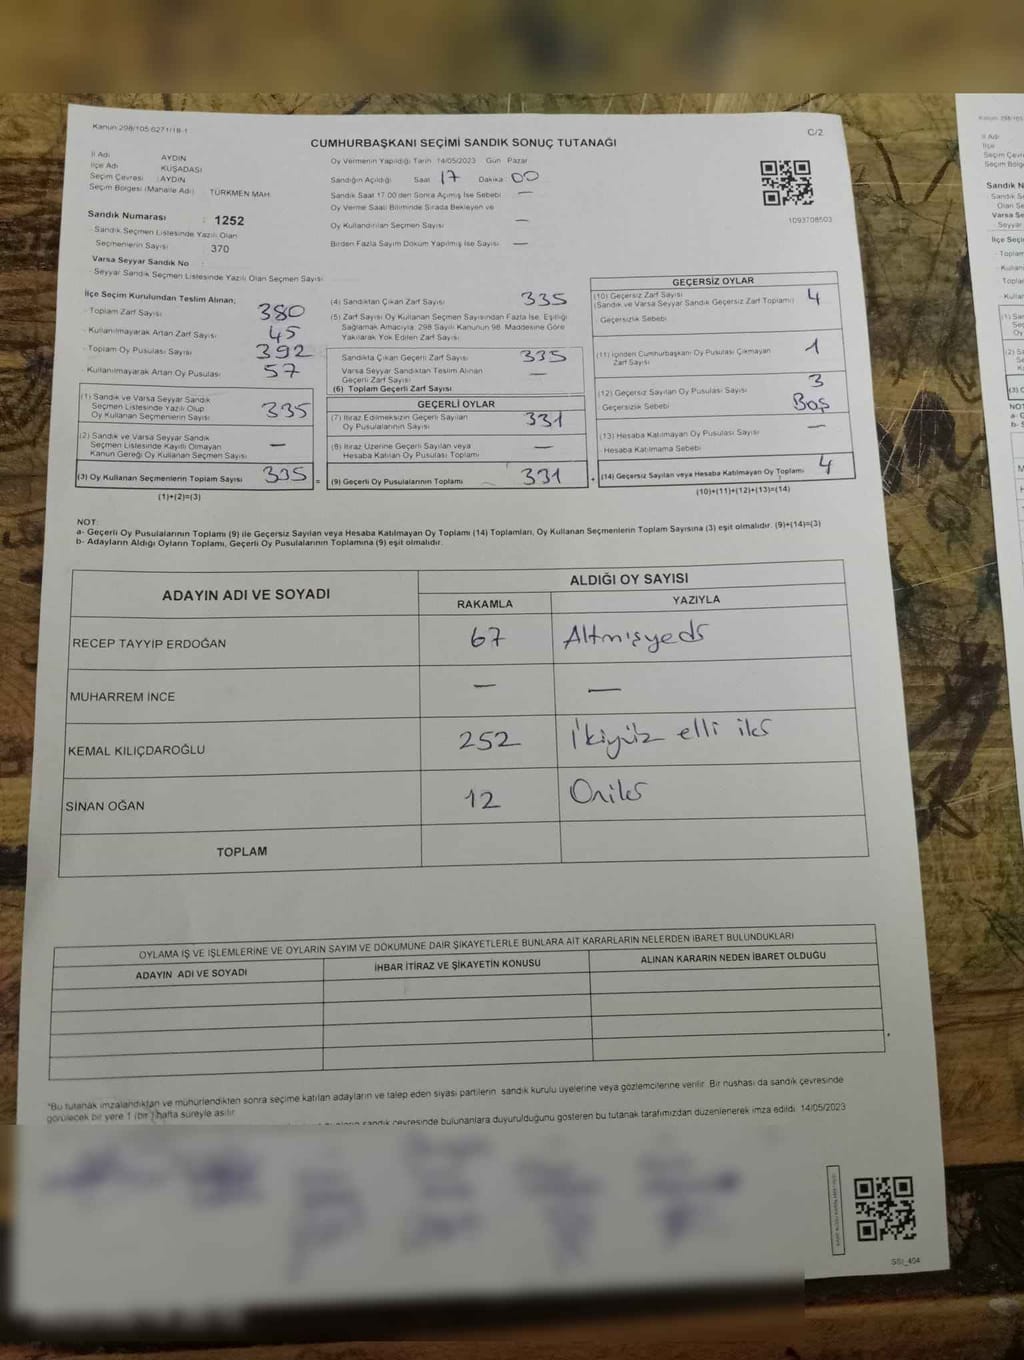 Kanun 298/105-6271/18-1
C/2
CUMHURBAŞKANI SEÇİMİ SANDIK SONUÇ TUTANAĞI
İl Adı AYDIN
İlçe Adı KUŞADASI
Seçim Çevresi : AYDIN
Seçim Bölgesi (Mahalle Adı) TÜRKMEN MAH.
Sandık Numarası : 1252
- Sandık Seçmen Listesinde Yazılı Olan
Seçmenlerin Sayısı 370
Varsa Seyyar Sandık No
- Seyyar Sandık Seçmen Listesinde Yazılı Olan Seçmen Sayısı
Oy Vermenin Yapıldığı Tarih 14/05/2023 Gün Pazar
Sandığın Açıldığı Saat 17 Dakika 00
Sandık Saat 17.00'den Sonra Açılmış İse Sebebi —
Oy Verme Saati Bitiminde Sırada Bekleyen ve
Oy Kullandırılan Seçmen Sayısı —
Birden Fazla Sayım Döküm Yapılmış İse Sayısı —
1093708503
İlçe Seçim Kurulundan Teslim Alınan;
- Toplam Zarf Sayısı 380
- Kullanılmayarak Artan Zarf Sayısı 45
- Toplam Oy Pusulası Sayısı 392
- Kullanılmayarak Artan Oy Pusulası 57
(1) Sandık ve Varsa Seyyar Sandık
Seçmen Listesinde Yazılı Olup
Oy Kullanan Seçmenlerin Sayısı 335
(2) Sandık ve Varsa Seyyar Sandık
Seçmen Listesinde Kayıtlı Olmayan
Kanun Gereği Oy Kullanan Seçmen Sayısı —
(3) Oy Kullanan Seçmenlerin Toplam Sayısı 335 =
(1)+(2)=(3)
(4) Sandıktan Çıkan Zarf Sayısı 335
(5) Zarf Sayısı Oy Kullanan Seçmen Sayısından Fazla İse, Eşitliği
Sağlamak Amacıyla, 298 Sayılı Kanunun 98. Maddesine Göre
Yakılarak Yok Edilen Zarf Sayısı
Sandıkta Çıkan Geçerli Zarf Sayısı 335
Varsa Seyyar Sandıktan Teslim Alınan
Geçerli Zarf Sayısı —
(6) Toplam Geçerli Zarf Sayısı
GEÇERLİ OYLAR
(7) İtiraz Edilmeksizin Geçerli Sayılan
Oy Pusulalarının Sayısı 331
(8) İtiraz Üzerine Geçerli Sayılan veya
Hesaba Katılan Oy Pusulası Toplamı —
(9) Geçerli Oy Pusulalarının Toplamı 331 +
GEÇERSİZ OYLAR
(10) Geçersiz Zarf Sayısı 4
(Sandık ve Varsa Seyyar Sandık Geçersiz Zarf Toplamı)
- Geçersizlik Sebebi
(11) İçinden Cumhurbaşkanı Oy Pusulası Çıkmayan
Zarf Sayısı 1
(12) Geçersiz Sayılan Oy Pusulası Sayısı 3
Geçersizlik Sebebi Boş
(13) Hesaba Katılmayan Oy Pusulası Sayısı —
- Hesaba Katılmama Sebebi
(14) Geçersiz Sayılan veya Hesaba Katılmayan Oy Toplamı 4
(10)+(11)+(12)+(13)=(14)
NOT:
a- Geçerli Oy Pusulalarının Toplamı (9) ile Geçersiz Sayılan veya Hesaba Katılmayan Oy Toplamı (14) Toplamları, Oy Kullanan Seçmenlerin Toplam Sayısına (3) eşit olmalıdır. (9)+(14)=(3)
b- Adayların Aldığı Oyların Toplamı, Geçerli Oy Pusulalarının Toplamına (9) eşit olmalıdır.
ADAYIN ADI VE SOYADI
ALDIĞI OY SAYISI
RAKAMLA YAZIYLA
RECEP TAYYİP ERDOĞAN 67 Altmışyedi
MUHARREM İNCE — —
KEMAL KILIÇDAROĞLU 252 İkiyüz elli iki
SİNAN OĞAN 12 Oniki
TOPLAM
OYLAMA İŞ VE İŞLEMLERİNE VE OYLARIN SAYIM VE DÖKÜMÜNE DAİR ŞİKAYETLERLE BUNLARA AİT KARARLARIN NELERDEN İBARET BULUNDUKLARI
ADAYIN ADI VE SOYADI İHBAR İTİRAZ VE ŞİKAYETİN KONUSU ALINAN KARARIN NEDEN İBARET OLDUĞU
*Bu tutanak imzalandıktan ve mühürlendikten sonra seçime katılan adayların ve talep eden siyasi partilerin sandık kurulu üyelerine veya gözlemcilerine verilir. Bir nüshası da sandık çevresinde
görülecek bir yere 1 (bir) hafta süreyle asılır.
sandık çevresinde bulunanlara duyurulduğunu gösteren bu tutanak tarafımızdan düzenlenerek imza edildi. 14/05/2023
SSİ_404